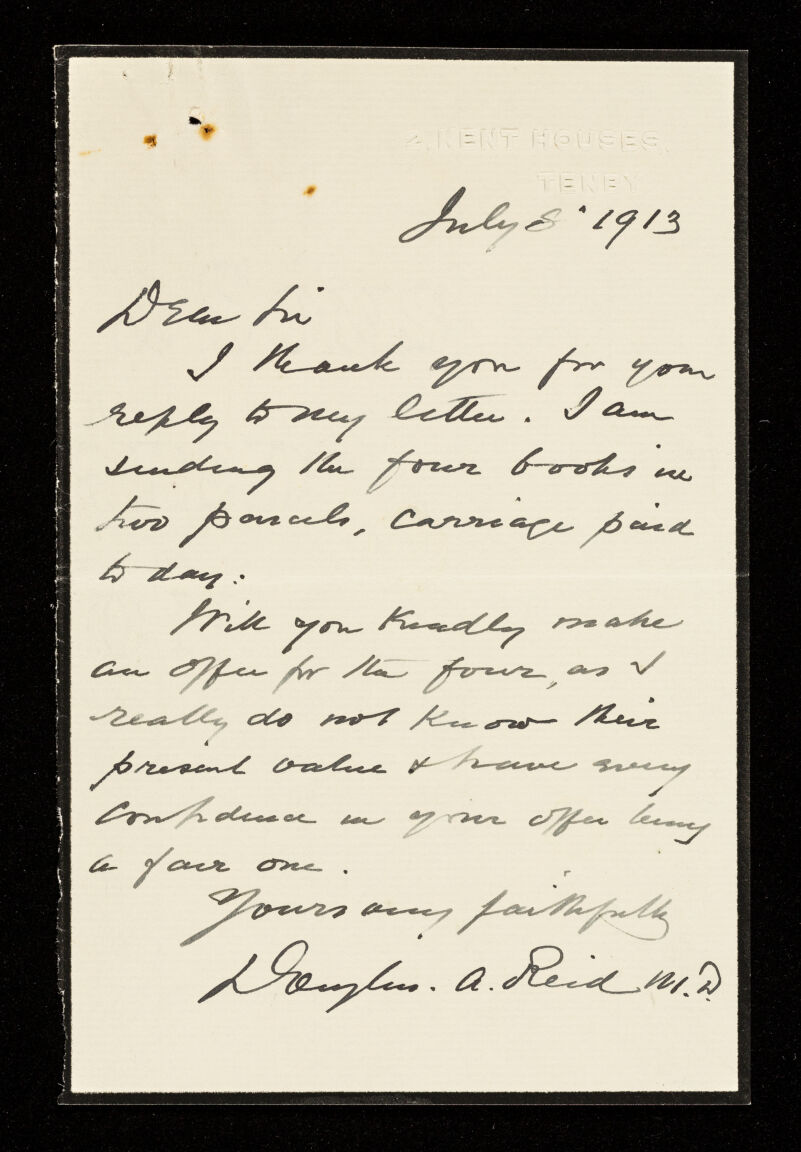 2, KENT HOUSES,
TENBY
July 8 1913
Dear Sir
I thank you for your
reply to my letter. I am
sending the four books in
two parcels, carriage paid
to day.
Will you kindly make
an offer for the four, as I
really do not know their
present value & have every
confidence in your offer being
a fair one.
Yours very faithfully
Douglas. A. Reid M.D.